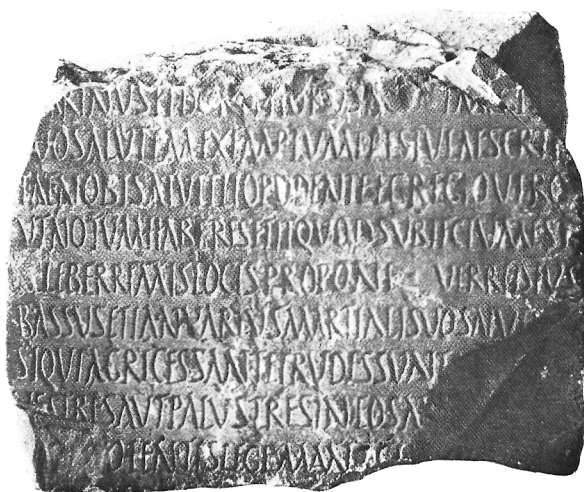 ARINVSETDORYPHORVS
VOSALVTEMEXEMPLVMEPISTVLAESCRI
TAENOBISATVTILIOPVDENTEEGREGIOVIRO
VTNOTVMHABERESETITQVODSVBIECTVMEST
ELEBERRIMISLOCISPROPONE VERRIDIVS
BASSVSETIANVARIVSMARTIALISVOSALV
SIQVIAGRICESSANTETRVDESSVNT
VESTRESAVTPALVSTRESINEOSA
OTENTESLEGEMANC